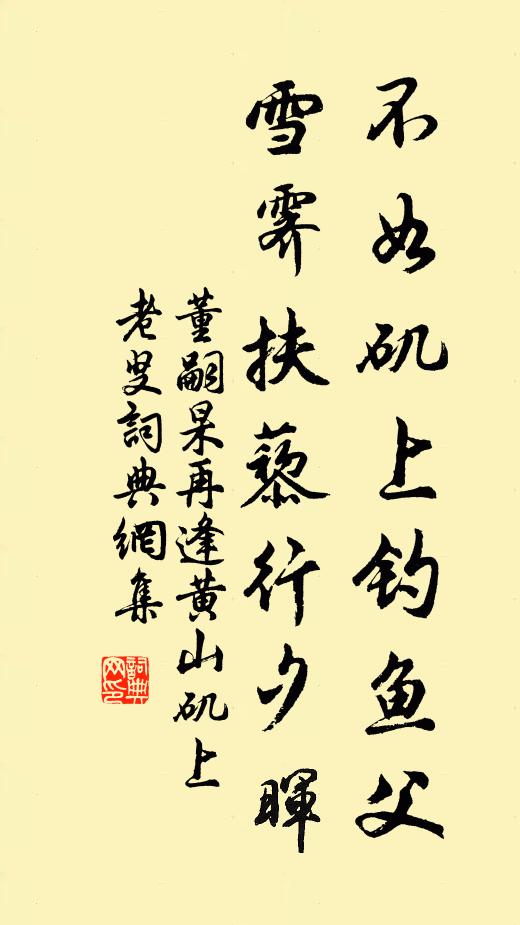 不如矶上钓鱼父
雪霁扶藜行夕暉
董嗣杲再逢黄山矶上
老叟詞典網集
詞典网印